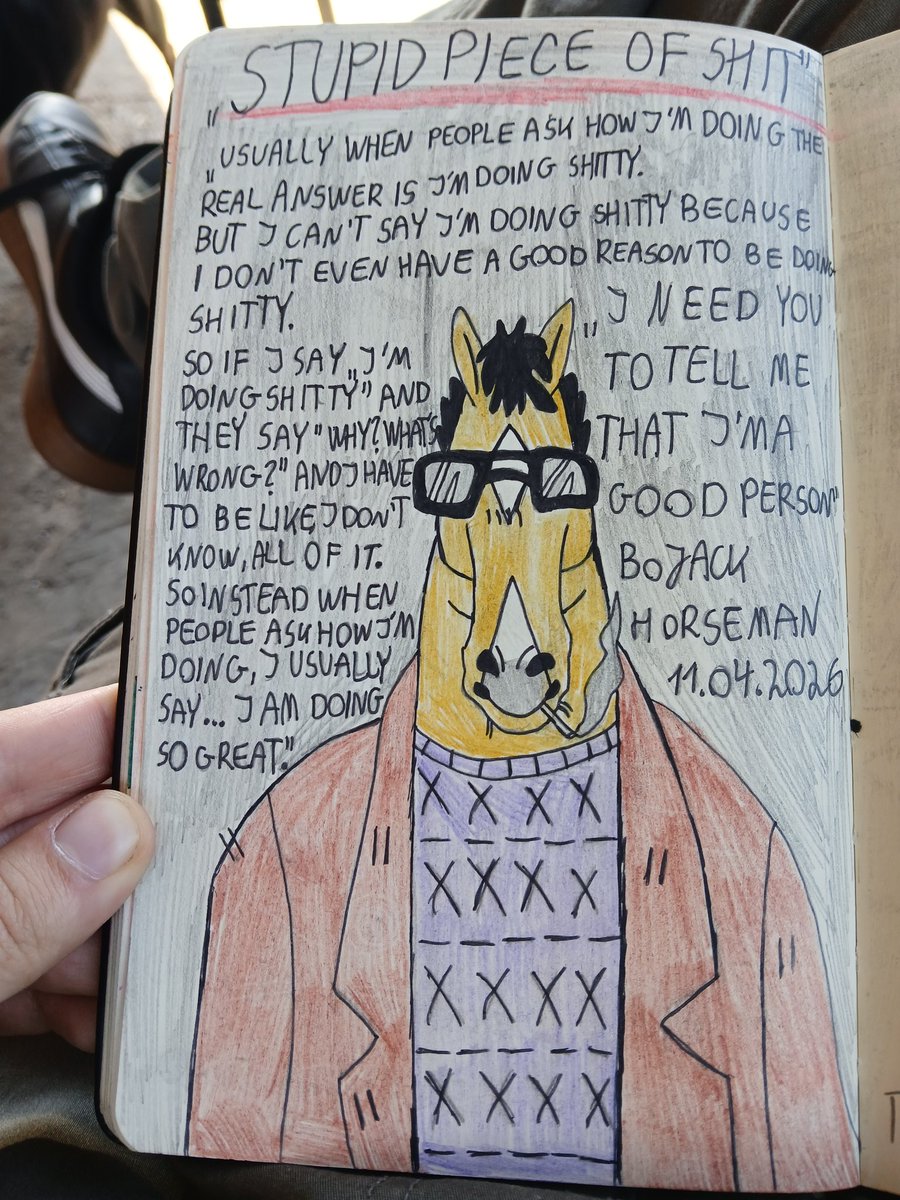 "STUPID PIECE OF SHIT"
„USUALLY WHEN PEOPLE ASK HOW I'M DOING THE
REAL ANSWER IS I'M DOING SHITTY.
BUT I CAN'T SAY I'M DOING SHITTY BECAUSE
I DON'T EVEN HAVE A GOOD REASON TO BE DOING
SHITTY.
SO IF I SAY „I'M
DOING SHITTY" AND
THEY SAY "WHY? WHAT'S
WRONG?" AND I HAVE
TO BE LIKE, I DON'T
KNOW, ALL OF IT.
SO INSTEAD WHEN
PEOPLE ASK HOW I'M
DOING, I USUALLY
SAY... I AM DOING
SO GREAT."
„I NEED YOU
TO TELL ME
THAT I'M A
GOOD PERSON"
BOJACK
HORSEMAN
11.04.2026